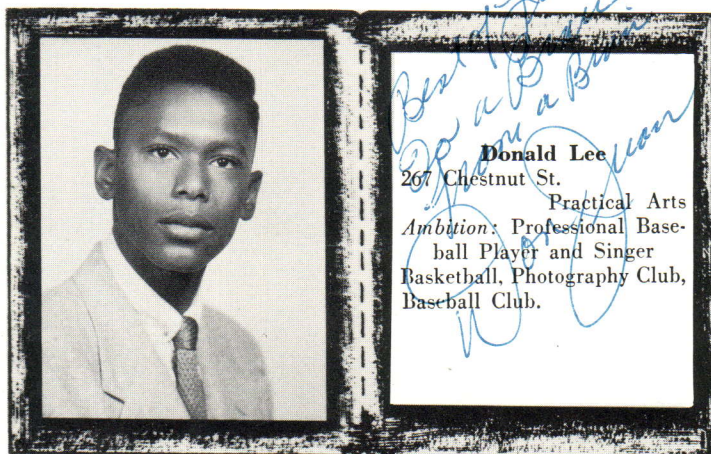 Best of
To a Brain
From a Brain
Don Juan
Donald Lee
267 Chestnut St.
Practical Arts
Ambition: Professional Base-
ball Player and Singer
Basketball, Photography Club,
Baseball Club.